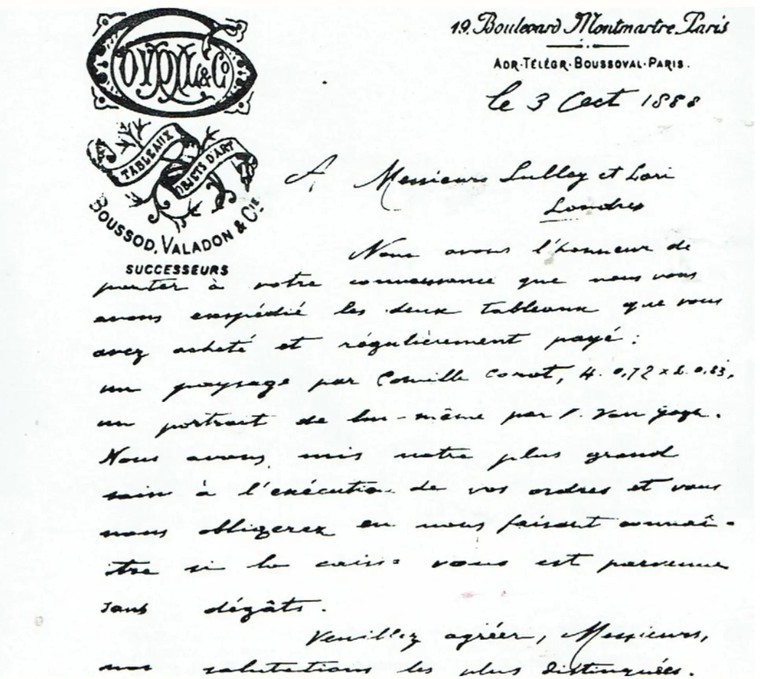 GOUPIL & Co
TABLEAUX
OBJETS D'ART
BOUSSOD, VALADON & Cie
SUCCESSEURS
19. Boulevard Montmartre. Paris
ADR. TÉLÉGR. BOUSSOVAL. PARIS.
le 3 Oct 1888
A Messieurs Sulley et Lori
Londres
Nous avons l'honneur de
porter à votre connaissance que nous vous
avons expédié les deux tableaux que vous
avez acheté et régulièrement payé :
un paysage par Camille Corot, H. 0,72 x L. 0.83,
un portrait de lui-même par V. Van Gogh.
Nous avons mis notre plus grand
soin à l'exécution de vos ordres et vous
nous obligerez en nous faisant connaî-
tre si la caisse vous est parvenue
sans dégâts.
Veuillez agréer, Messieurs,
nos salutations les plus distinguées.